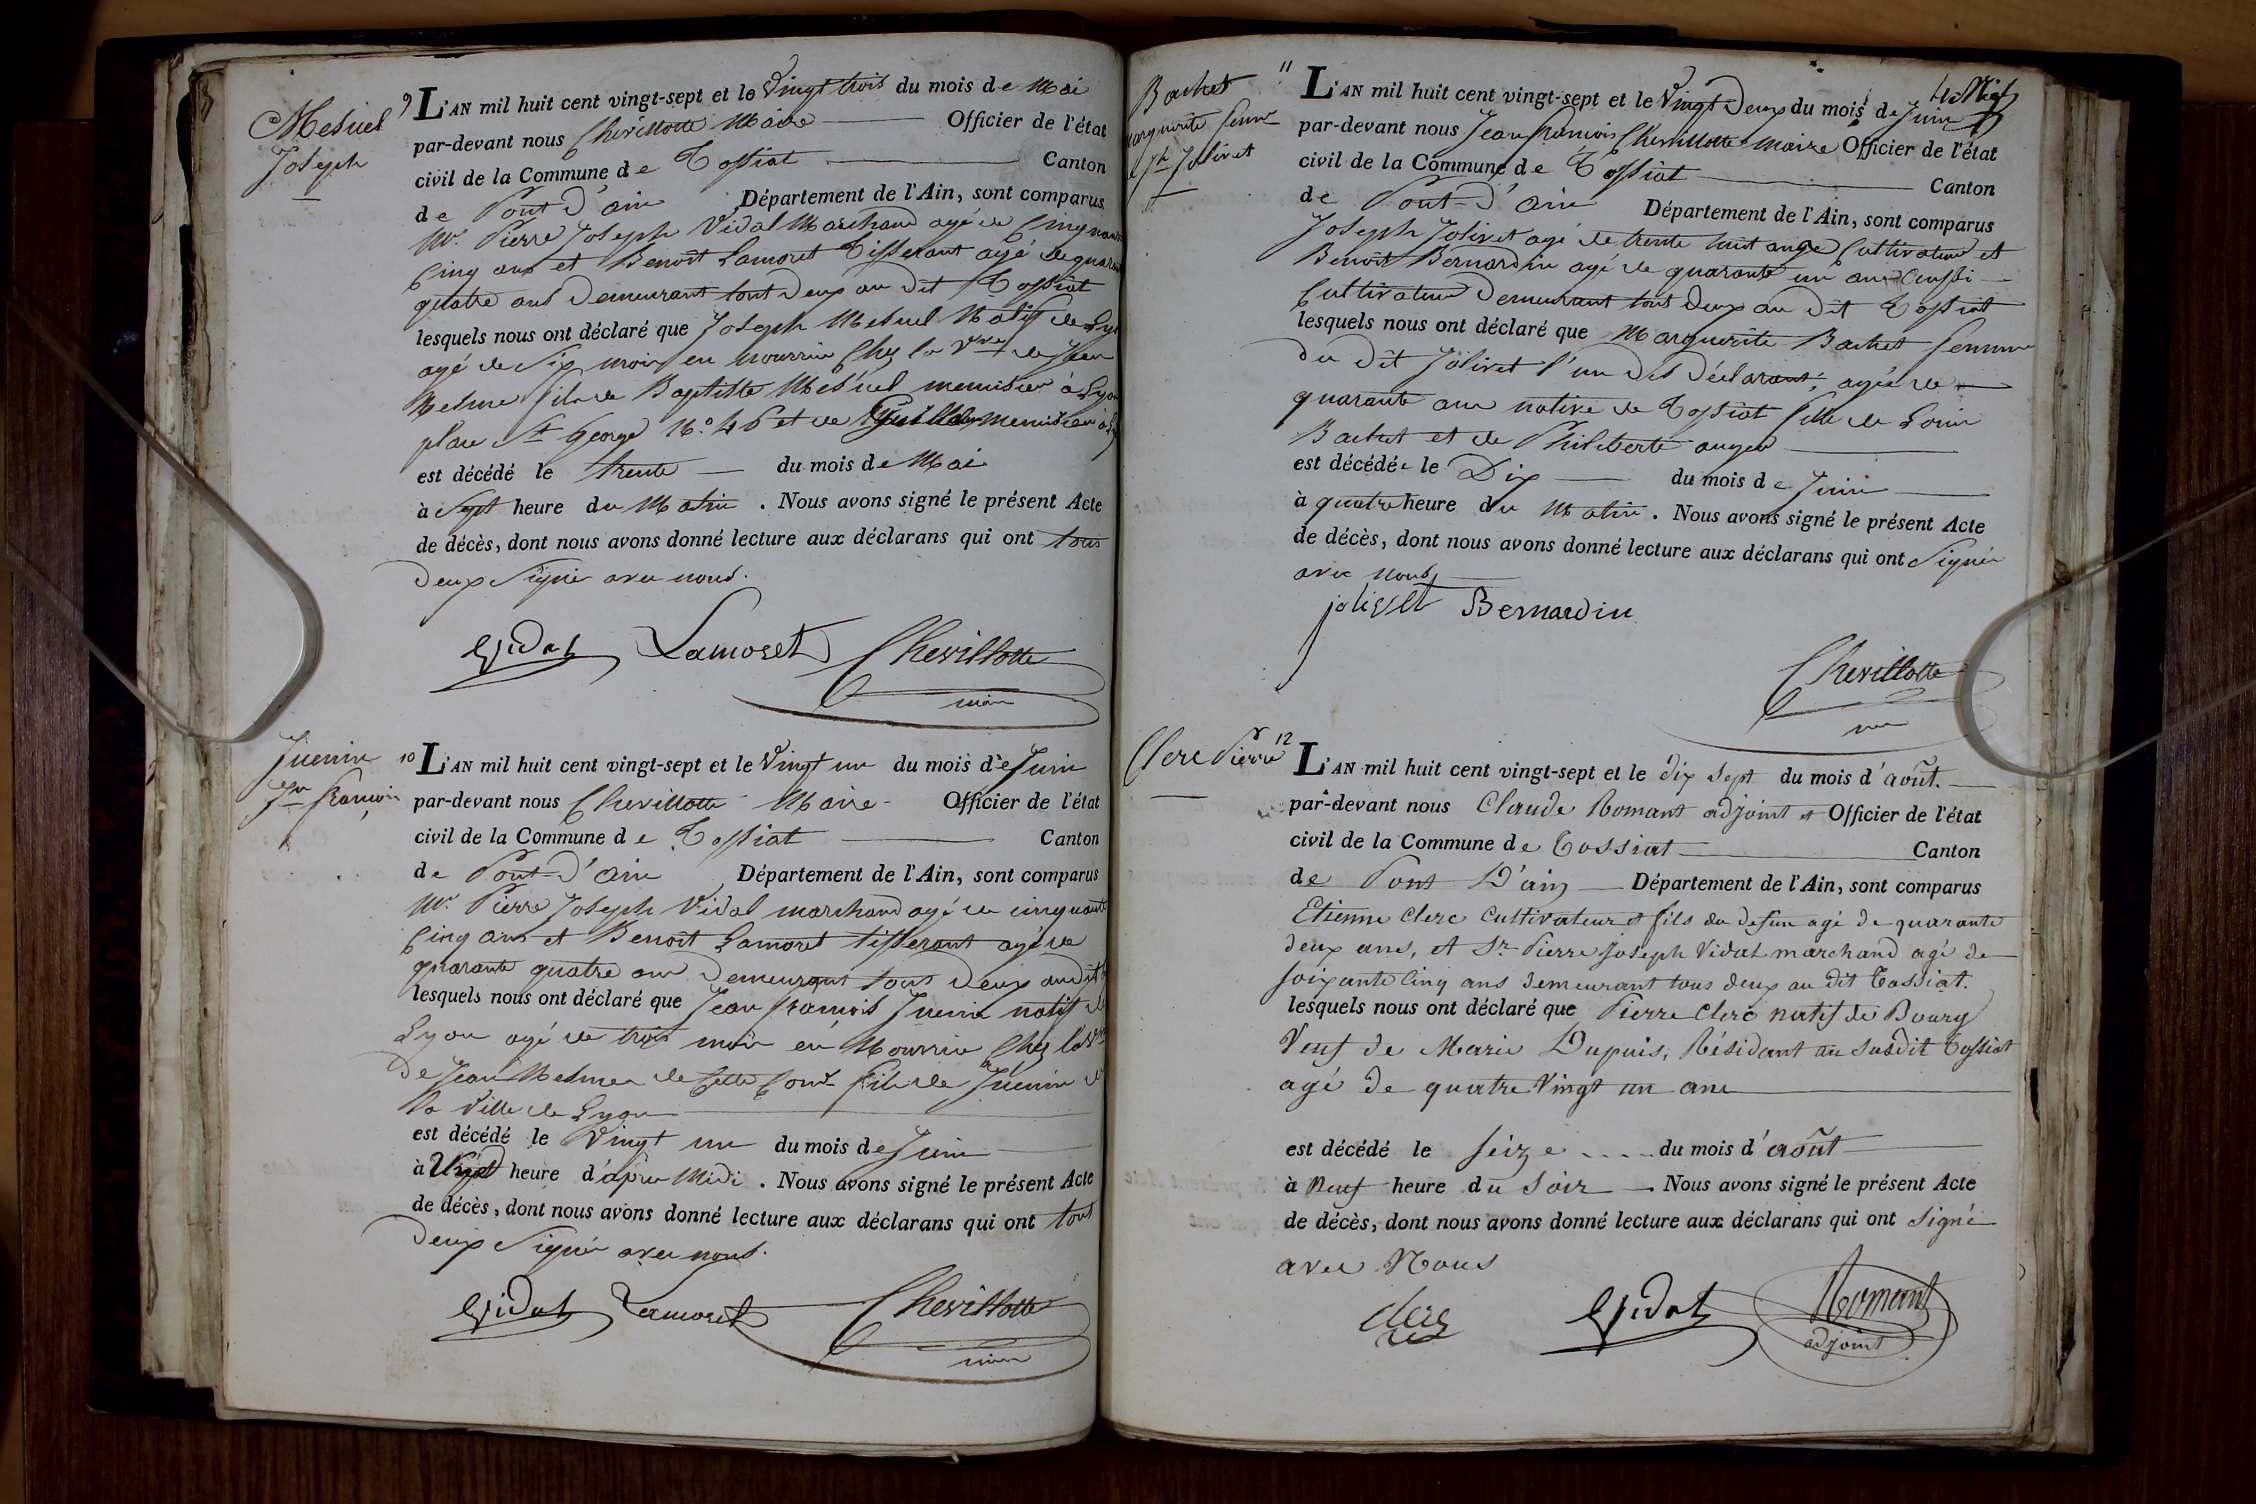 Mesuel
Joseph
9 L'AN mil huit cent vingt-sept et le Vingt trois du mois de Mai
par-devant nous Chevillotte Maire Officier de l'état
civil de la Commune de Tossiat Canton
de Pont d'ain Département de l'Ain, sont comparus
Mr. Pierre Joseph Vidal Marchand agé de Cinquante
Cinq ans et Benoit Lamoret Tisserant agé de quarante
quatre ans Demeurant tout Deux au Dit Tossiat
lesquels nous ont déclaré que Joseph Mesuel Natif de Lyon
agé de Six mois en Nourrice Chez la Vve de Jean
fils de Baptiste Mesuel menuisier à Lyon
place St George No. 46 et de menuisier à
est décédé le trente du mois de Mai
à Sept heure du Matin . Nous avons signé le présent Acte
de décès, dont nous avons donné lecture aux déclarans qui ont tous
Deux Signé avec nous.
Vidal Lamoret Chevillotte
maire
Juenin
Jn francois
10 L'AN mil huit cent vingt-sept et le Vingt un du mois de Juin
par-devant nous Chevillotte Maire Officier de l'état
civil de la Commune de Tossiat Canton
de Pont d'ain Département de l'Ain, sont comparus
Mr. Pierre Joseph Vidal marchand agé de cinquante
Cinq ans et Benoit Lamoret tisserant agé de
quarante quatre ans Demeurant tous Deux au dit
lesquels nous ont déclaré que Jean francois Juenin natif de
Lyon agé de trois mois en Nourrice Chez la Vve
De Jean de Cette Come fils de Juenin de
la Ville de Lyon
est décédé le Vingt un du mois de Juin
à heure d'après Midi . Nous avons signé le présent Acte
de décès, dont nous avons donné lecture aux déclarans qui ont tous
Deux Signé avec nous.
Vidal Lamoret Chevillotte
maire
Bachet
Marguerite femme
de Jh Jolivet
11 L'AN mil huit cent vingt-sept et le Vingt Deux du mois de Juin
par-devant nous Jean francois Chevillotte maire Officier de l'état
civil de la Commune de Tossiat Canton
de Pont d'ain Département de l'Ain, sont comparus
Joseph Jolivet agé de trente huit ans Cultivateur et
Benoit Bernardin agé de quarante un ans aussi
Cultivateur Demeurant tout deux au Dit Tossiat
lesquels nous ont déclaré que Marguerite Bachet femme
du Dit Jolivet l'un des déclarant, agée de
quarante ans native de Tossiat fille de Louis
Bachet et de Philiberte auger
est décédée le Dix du mois de Juin
à quatre heure du Matin . Nous avons signé le présent Acte
de décès, dont nous avons donné lecture aux déclarans qui ont Signé
avec nous
jolivet Bernardin
Chevillotte
Clerc Pierre
12 L'AN mil huit cent vingt-sept et le dix sept du mois d'août.
par-devant nous Claude Romant adjoint et Officier de l'état
civil de la Commune de Tossiat Canton
de Pont D'ain Département de l'Ain, sont comparus
Etienne Clerc Cultivateur et fils du defun agé de quarante
deux ans, et Sr Pierre Joseph Vidal marchand agé de
soixante Cinq ans demeurant tous deux au dit Tossiat.
lesquels nous ont déclaré que Pierre Clerc natif de Bourg
Veuf de Marie Dupuis, Résidant au susdit Tossiat
agé de quatre Vingt un ans
est décédé le seize du mois d'août
à neuf heure du Soir Nous avons signé le présent Acte
de décès, dont nous avons donné lecture aux déclarans qui ont signé
avec Nous
clerc Vidal Romant
adjoint